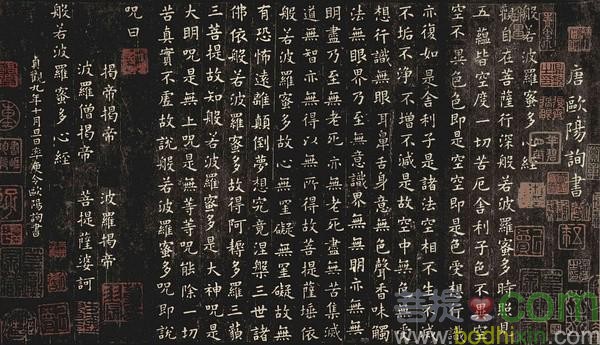 唐歐陽詢書
般若波羅蜜多心經
觀自在菩薩行深般若波羅蜜多時照見
五蘊皆空度一切苦厄舍利子色不異空
空不異色色即是空空即是色受想行識
亦復如是舍利子是諸法空相不生不滅
不垢不淨不增不減是故空中無色無受
想行識無眼耳鼻舌身意無色聲香味觸
法無眼界乃至無意識界無無明亦無無
明盡乃至無老死亦無老死盡無苦集滅
道無智亦無得以無所得故菩提薩埵依
般若波羅蜜多故心無罣礙無罣礙故無
有恐怖遠離顛倒夢想究竟涅槃三世諸
佛依般若波羅蜜多故得阿耨多羅三藐
三菩提故知般若波羅蜜多是大神呪是
大明呪是無上呪是無等等呪能除一切
苦真實不虛故說般若波羅蜜多呪即說
呪曰
揭帝揭帝 波羅揭帝
波羅僧揭帝 菩提薩婆訶
般若波羅蜜多心經
貞觀九年十月旦日率更令歐陽詢書
菩提.com